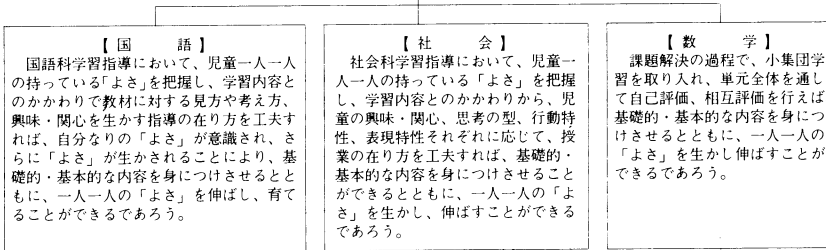 【国　　語】
国語科学習指導において、児童一人一人
の持っている「よさ」を把握し、学習内容と
のかかわりで教材に対する見方や考え方、
興味・関心を生かす指導の在り方を工夫す
れば、自分なりの「よさ」が意識され、さ
らに「よさ」が生かされることにより、基
礎的・基本的な内容を身につけさせるとと
もに、一人一人の「よさ」を伸ばし、育て
ることができるであろう。
【社　　会】
社会科学習指導において、児童一
人一人の持っている「よさ」を把握
し、学習内容とのかかわりから、児
童の興味・関心、思考の型、行動特
性、表現特性それぞれに応じて、授
業の在り方を工夫すれば、基礎的・
基本的な内容を身につけさせること
ができるとともに、一人一人の「よ
さ」を生かし、伸ばすことができる
であろう。
【数　　学】
課題解決の過程で、小集団学
習を取り入れ、単元全体を通し
て自己評価、相互評価を行えば
基礎的・基本的な内容を身につ
けさせるとともに、一人一人の
「よさ」を生かし伸ばすことが
できるであろう。